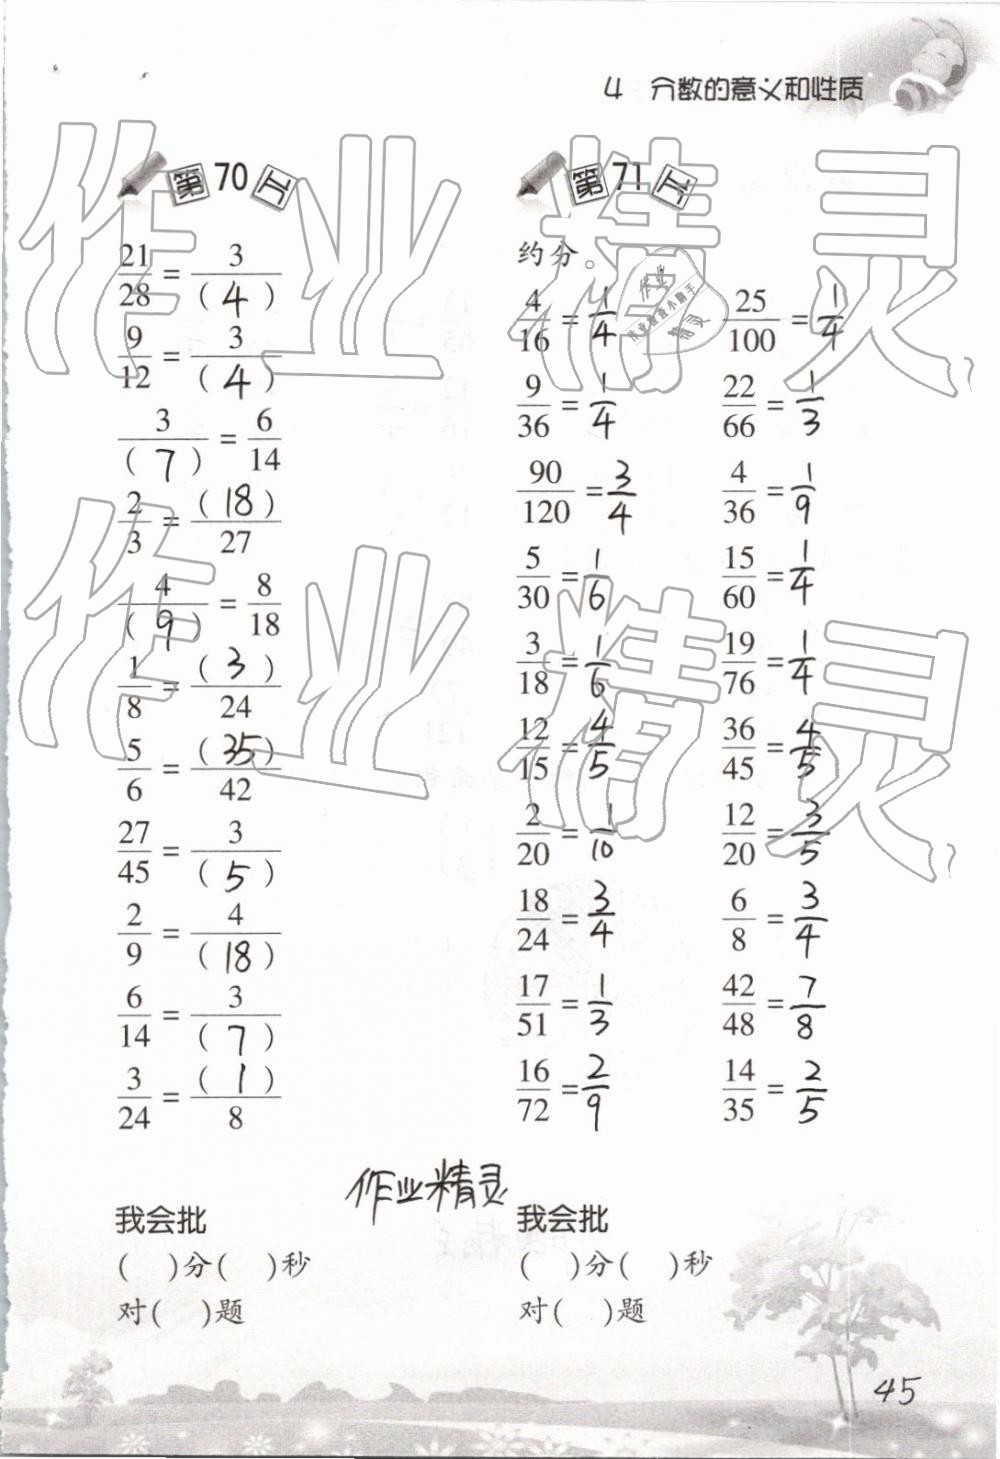 4 分数的意义和性质
第70天
21/28 = 3/(4)
9/12 = 3/(4)
3/(7) = 6/14
2/3 = (18)/27
4/(9) = 8/18
1/8 = (3)/24
5/6 = (35)/42
27/45 = 3/(5)
2/9 = 4/(18)
6/14 = 3/(7)
3/24 = (1)/8
我会批
( )分( )秒
对( )题
第71天
约分。
4/16 = 1/4 25/100 = 1/4
9/36 = 1/4 22/66 = 1/3
90/120 = 3/4 4/36 = 1/9
5/30 = 1/6 15/60 = 1/4
3/18 = 1/6 19/76 = 1/4
12/15 = 4/5 36/45 = 4/5
2/20 = 1/10 12/20 = 3/5
18/24 = 3/4 6/8 = 3/4
17/51 = 1/3 42/48 = 7/8
16/72 = 2/9 14/35 = 2/5
我会批
( )分( )秒
对( )题
作业精灵
45
作业精灵
作业精灵